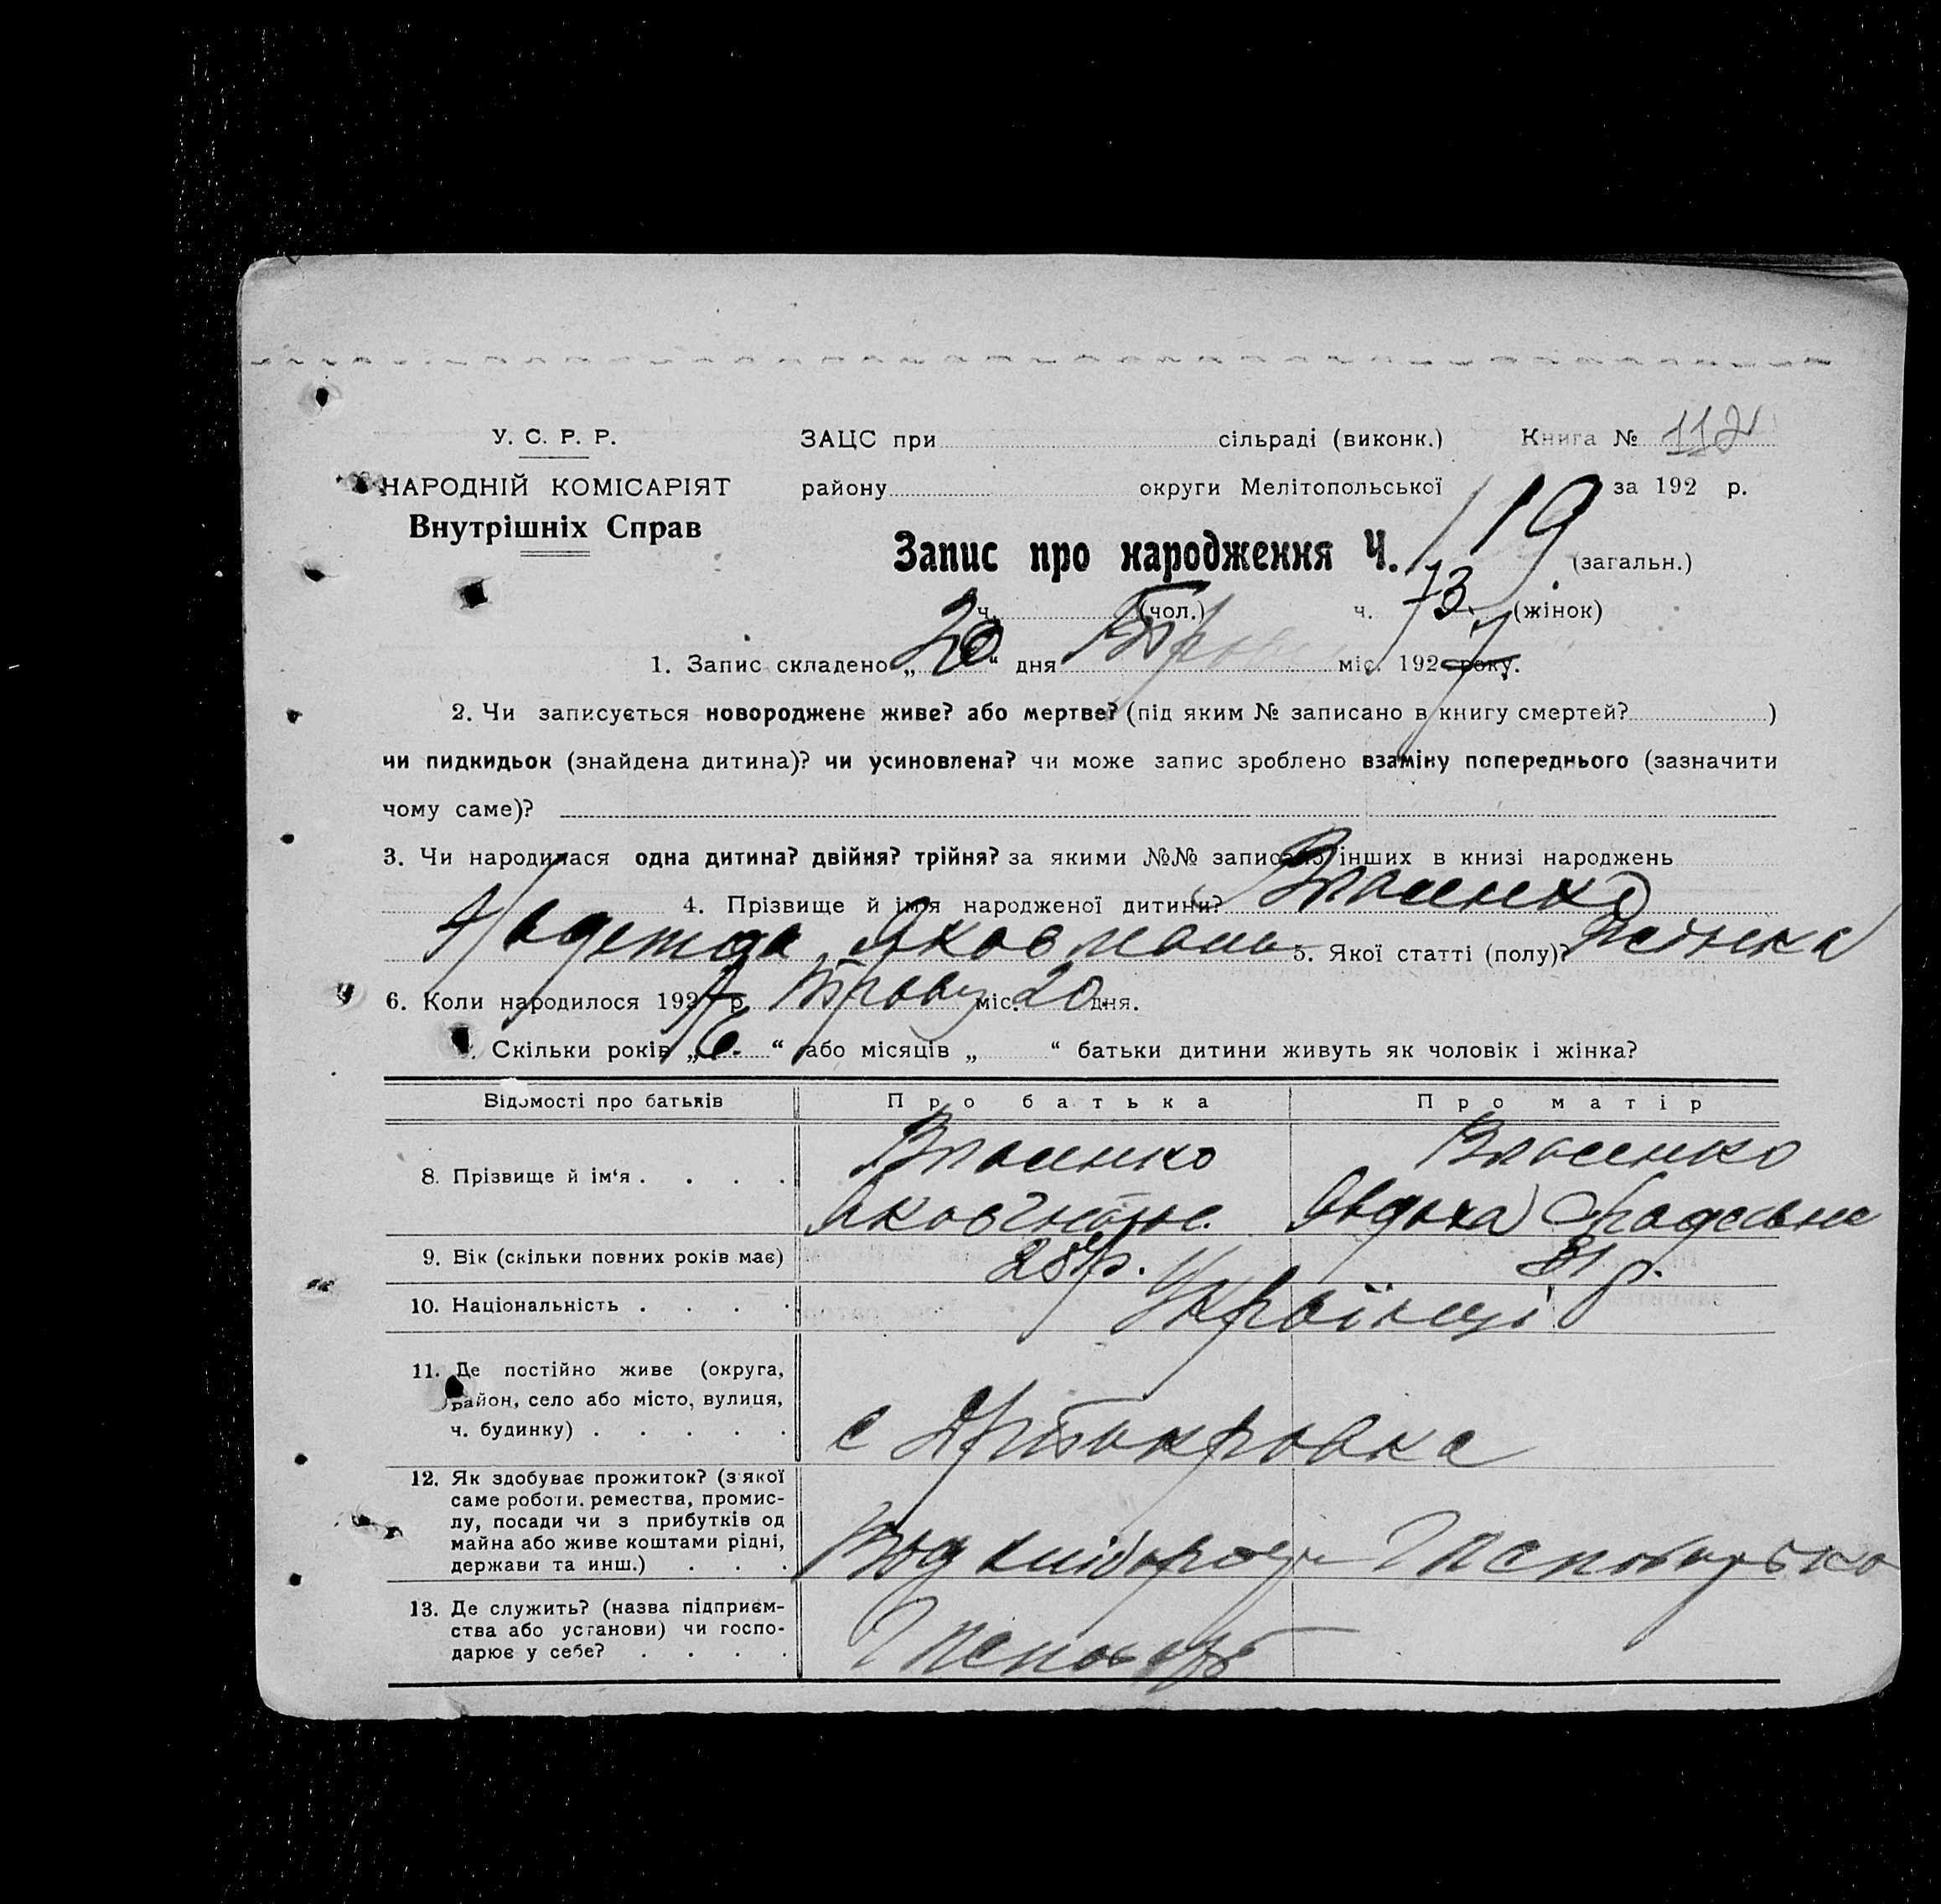 У. С. Р. Р.
НАРОДНІЙ КОМІСАРІЯТ
Внутрішніх Справ
ЗАЦС при сільраді (виконк.) Книга № 112
району округи Мелітопольської за 192 р.
Запис про народження Ч. 119 (загальн.)
ч. (чол.) ч. 73 (жінок)
1. Запис складено „20“ дня міс. 1927 року.
2. Чи записується новороджене живе? або мертве? (під яким № записано в книгу смертей? )
чи пидкидьок (знайдена дитина)? чи усиновлена? чи може запис зроблено взаміну попереднього (зазначити
чому саме)?
3. Чи народилася одна дитина? двійня? трійня? за якими №№ записано інших в книзі народжень
4. Прізвище й ім'я народженої дитини? Власенко
5. Якої статті (полу)?
6. Коли народилося 1927 р. Траву міс. 20 дня.
Скільки років „6.“ або місяців „ “ батьки дитини живуть як чоловік і жінка?
Відомості про батьків Про батька Про матір
8. Прізвище й ім'я . . . . Власенко Власенко
Яков Овдоха
9. Вік (скільки повних років має) 28 р. 31 р.
10. Національність . . . . Українці
11. Де постійно живе (округа,
район, село або місто, вулиця,
ч. будинку) . . . . . с
12. Як здобуває прожиток? (з якої
саме роботи. ремества, промис-
лу, посади чи з прибутків од
майна або живе коштами рідні,
держави та инш.) . . .
13. Де служить? (назва підприєм-
ства або установи) чи госпо-
дарює у себе? . . . .